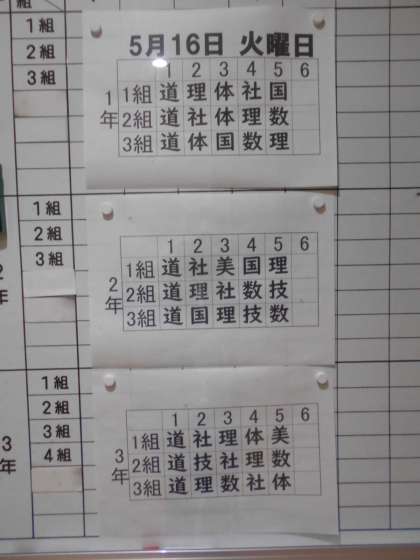 組
1組
2組
3組
5月16日 火曜日
1 2 3 4 5 6
1年
1組 道 理 体 社 国
2組 道 社 体 理 数
3組 道 体 国 数 理
1組
2組
3組
2年
1 2 3 4 5 6
2年
1組 道 社 美 国 理
2組 道 理 社 数 技
3組 道 国 理 技 数
1組
2組
3組
4組
3年
1 2 3 4 5 6
3年
1組 道 社 理 体 美
2組 道 技 社 理 数
3組 道 理 数 社 体